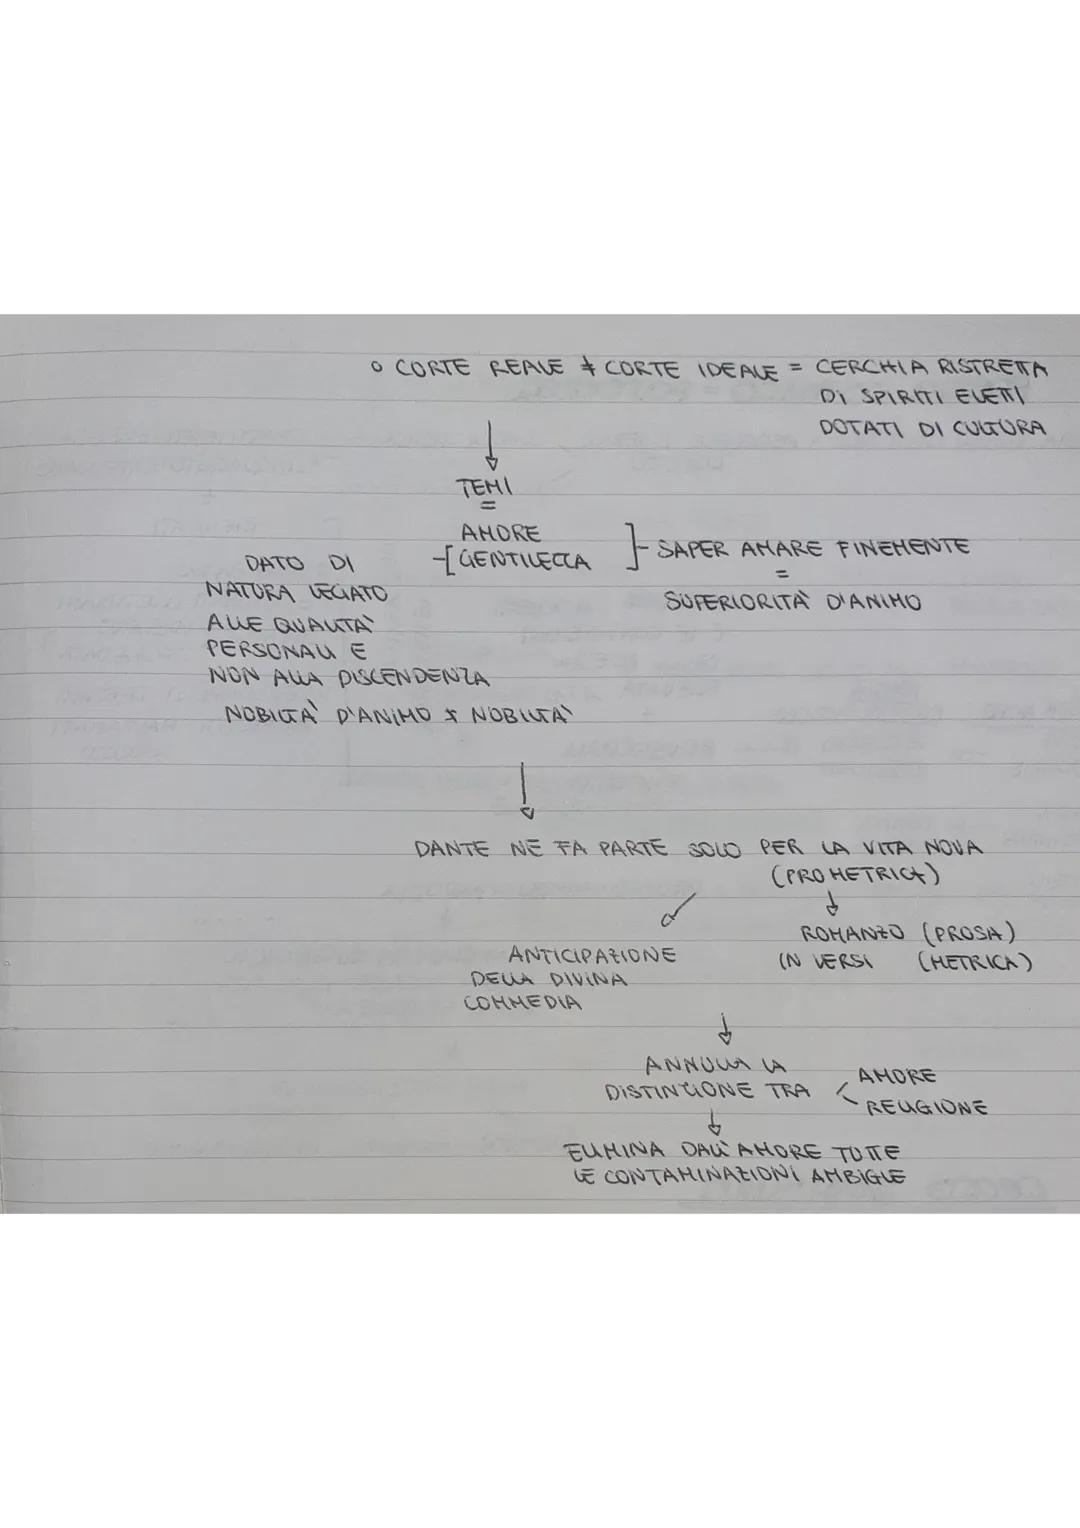 o CORTE REALE ≠ CORTE IDEALE = CERCHIA RISTRETTA
DI SPIRITI ELETTI
DOTATI DI CULTURA
↓
TEMI
=
AMORE
GENTILEZZA
SAPER AMARE FINEMENTE
=
SUPERIORITÀ D'ANIMO
DATO DI
NATURA LEGATO
ALLE QUALITÀ
PERSONALI E
NON ALLA DISCENDENZA
NOBILTÀ D'ANIMO ≠ NOBILTÀ
↓
DANTE NE FA PARTE SOLO PER LA VITA NOVA
(PROMETRICA)
↓
ROMANZO (PROSA)
IN VERSI (METRICA)
ANTICIPAZIONE
DELLA DIVINA
COMMEDIA
↓
ANNULLA LA
DISTINZIONE TRA
AMORE
RELIGIONE
↓
ELIMINA DALL'AMORE TUTTE
LE CONTAMINAZIONI AMBIGUE